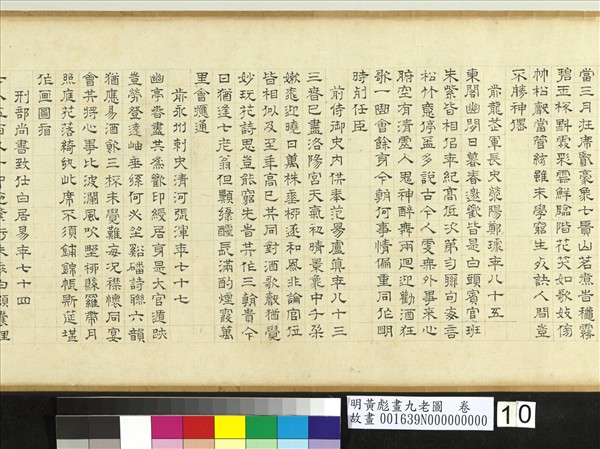 當三月在席歡豪象七賢山茗煮當穠霧
碧玉杯斟處彩雲鮮臨階花笑如歌妓傍
竹松聲當管絃雖未學窮生死訣人間豈
不是神僊
前龍武軍長史滎陽鄭據年八十五
東閣幽閒日暮春邀歡皆是白頭賓官班
朱紫皆相侶年紀高低次第勻聯句每言
松竹意停盃多說古今人更無外事來心
腑空有清靈入鬼神醉舞兩迴迎勸酒狂
歌一曲會餘身今朝何事情偏重同作明
時列任臣
前侍御史內供奉范陽盧真年八十三
三春已盡洛陽宮天氣初晴景象中千朵
嫩桃迎曉日萬株垂柳逐和風非論官位
皆相似及至年高已共同對酒歌聲猶覺
妙玩花詩思豈能窮先皆共作三朝貴今
日猶逢七老翁但願綠醽長滿酌煙霞萬
里會應通
前永州刺史清河張渾年七十七
幽亭春盡共為歡印綬居身是大官遁跡
豈勞登遠岫垂絲何必坐谿磻詩聯六韻
猶應易酒飲三杯未覺難每況襟懷同宴
會共將心事比波瀾風吹野柳懸羅帶月
照庭花落綺紈此席不須鋪錦帳斯筵堪
作畫圖看
刑部尚書致仕白居易年七十四
明黃彪畫九老圖 卷
故畫 001639N000000000
10